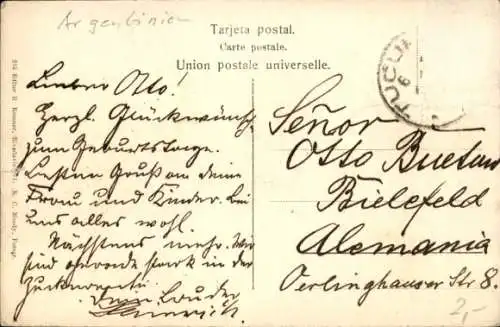 Argentinien
Tarjeta postal.
Carte postale.
Union postale universelle.
TUCUM
6
Lieber Otto!
Herzl. Glückwünsche
zum Geburtstage.
Besten Gruß an deine
Frau und Kinder. Bei
uns alles wohl.
Nächstens mehr. Wir
sind gerade stark in der
Dein Bruder
Heinrich
Señor
Otto
Bielefeld
Alemania
Oerlinghauser Str 8.
2,-